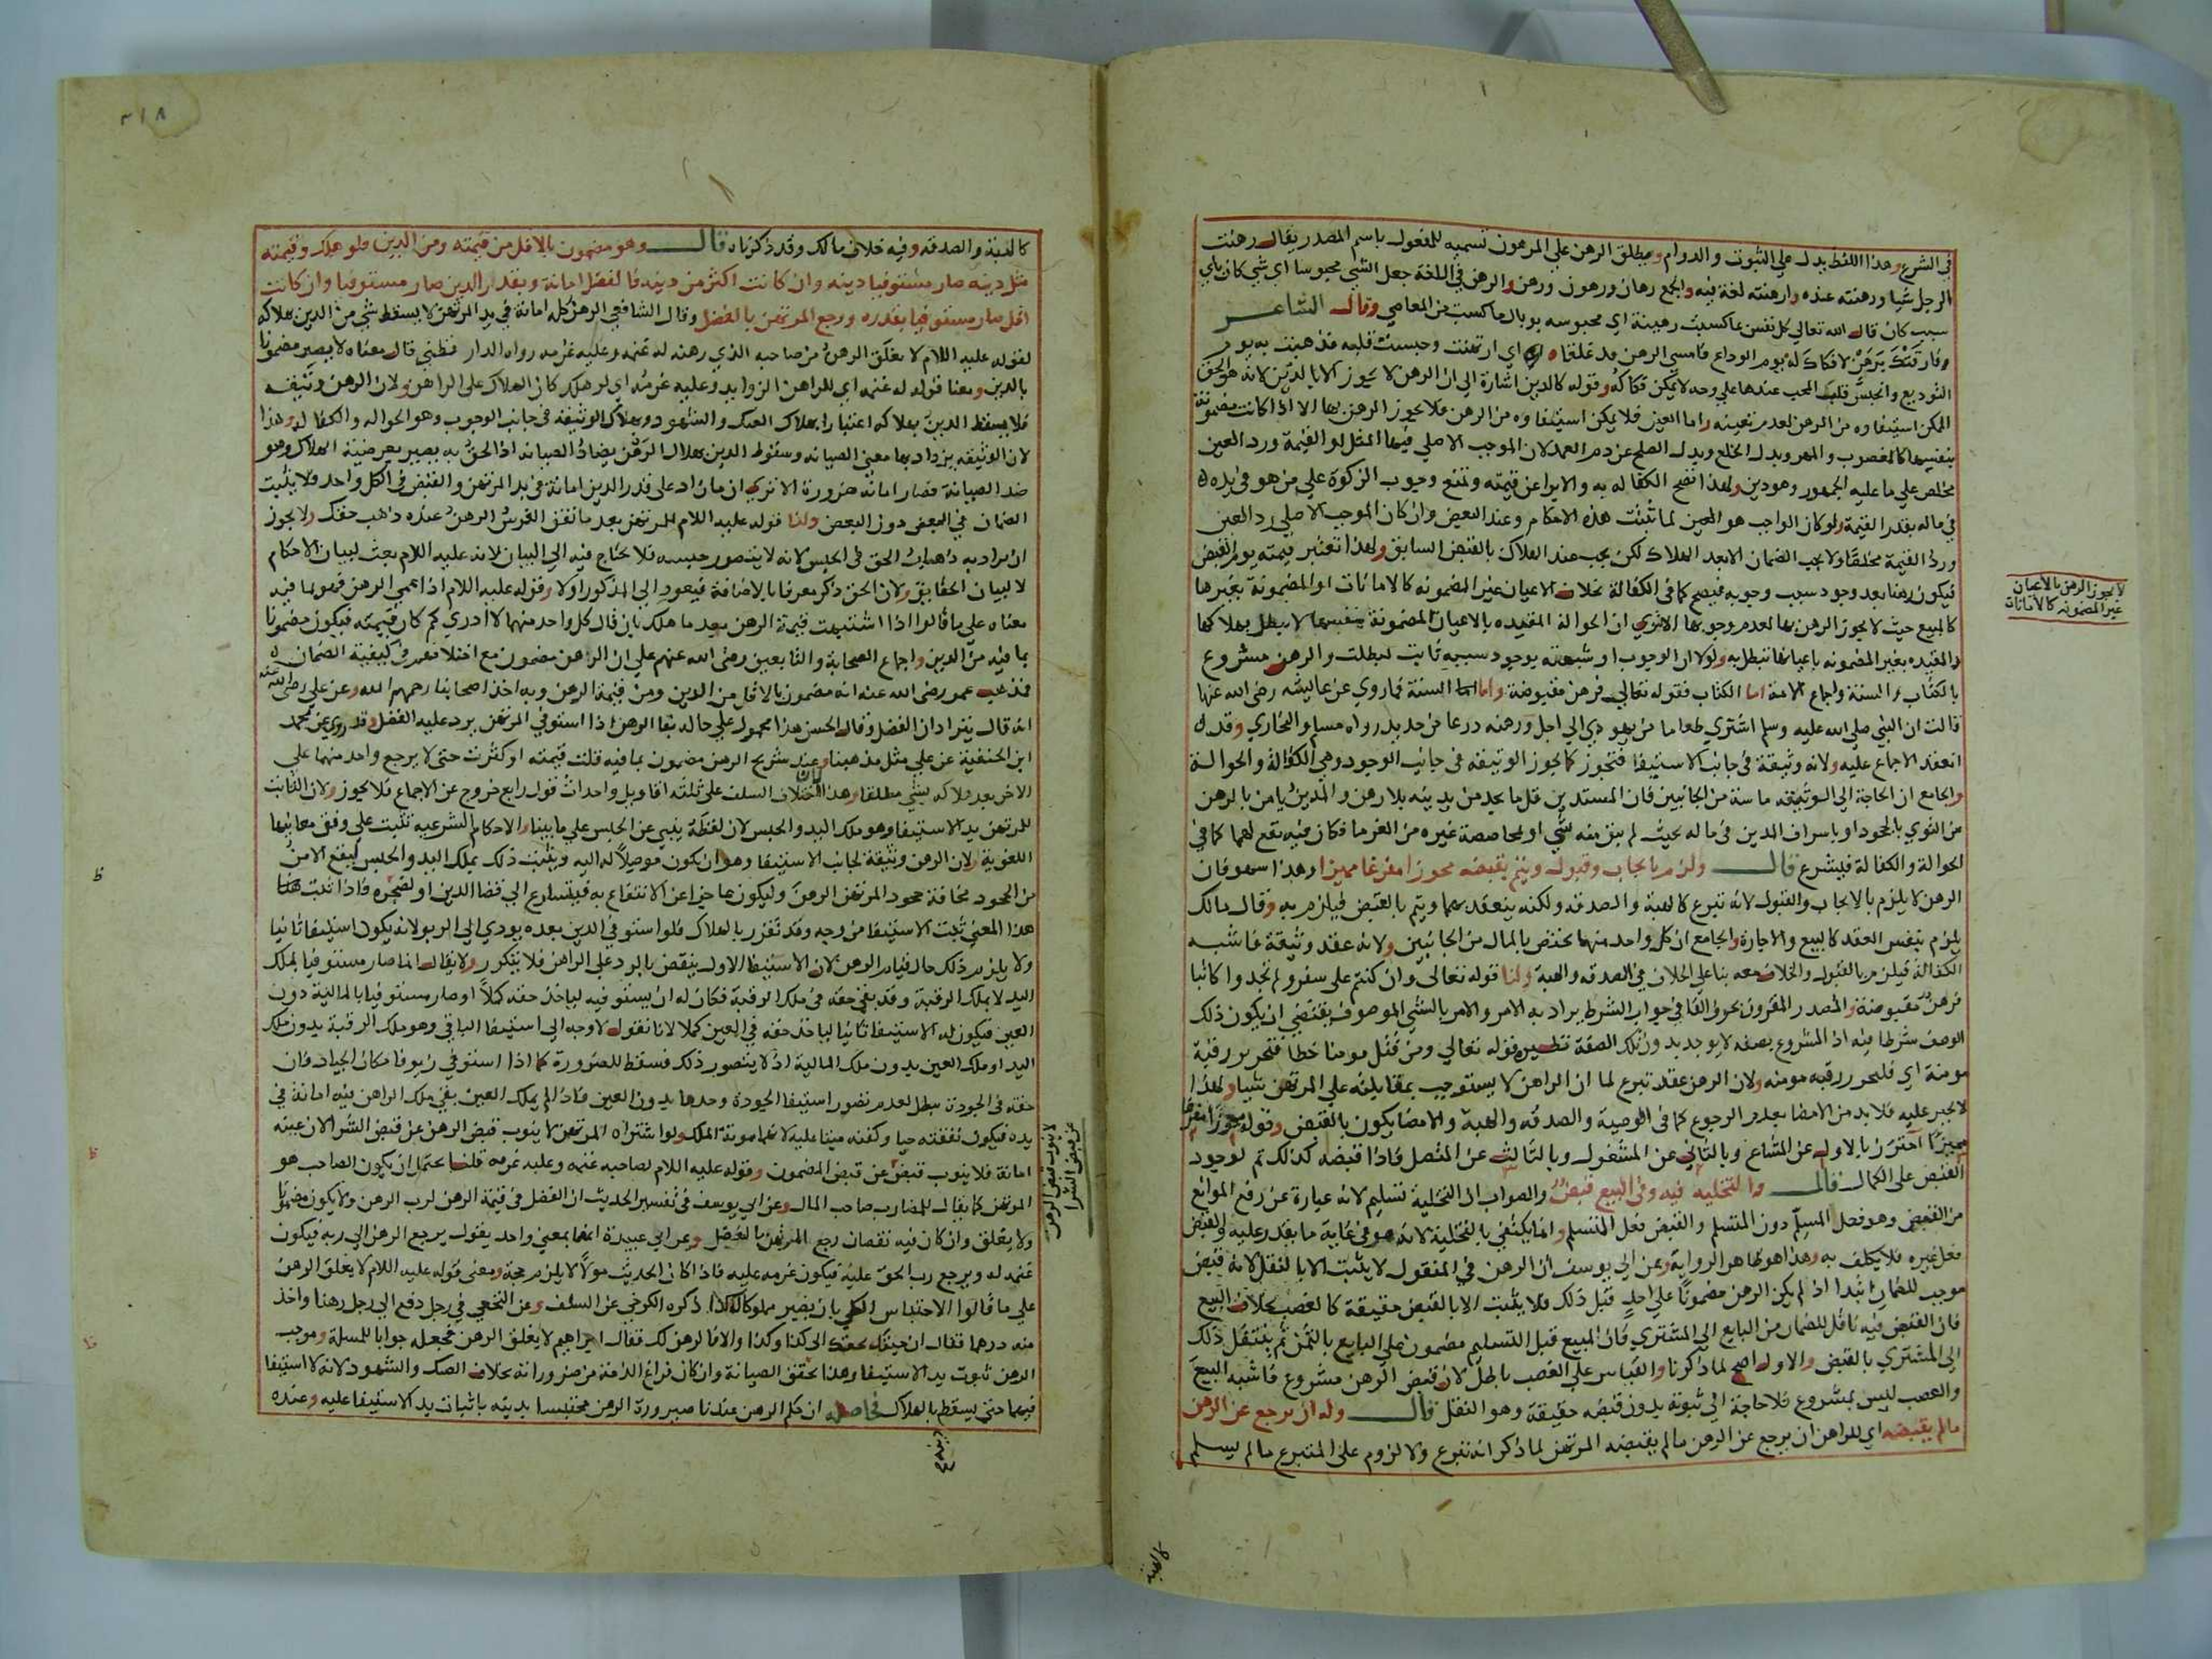 في الشرع وهذا اللفظ يدل على الثبوت والدوام ويطلق الرهن على المرهون تسمية للمفعول باسم المصدر يقال رهنت
الرجل شيا ورهنته عنده وارهنته لغة فيه والجمع رهان ورهون ورهن والرهن في اللغة جعل الشي محبوسا اي شي كان باي
سبب كان قال الله تعالي كل نفس بما كسبت رهينة اي محبوسه بوبال ما كسبت من المعاصي وقال الشاعر
وفارقتك برهن لا فكاك له يوم الوداع فامسي الرهن قد غلقا اي ارتهنت وحبست قلبه فذهبت به يوم
التوديع وانحبس قلب المحب عندها علي وجه لا يمكن فكاكه وقوله كالدين اشارة الي ان الرهن لا يجوز الا بالدين لانه هو الحق
الممكن استيفاوه من الرهن لعدم تعينه واما العين فلا يمكن استيفاوه من الرهن فلا يجوز الرهن بها الا اذا كانت مضمونة
بنفسها كالمغصوب والمهر وبدل الخلع وبدل الصلح عن دم العمد لان الموجب الاصلي فيها المثل او القيمة ورد العين
مخلص علي ما عليه الجمهور وهو دين ولهذا تصح الكفاله به والابرا عن قيمته وتمنع وجوب الزكوة علي من هو في يده
في ماله بقدر القيمة ولو كان الواجب هو العين لما ثبتت هذه الاحكام وعند البعض وان كان الموجب الاصلي رد العين
ورد القيمة مخلصا ولا يجب الضمان الا بعد الهلاك لكن يجب عند الهلاك بالقبض السابق ولهذا تعتبر قيمته يوم القبض
فيكون رهنا بعد وجود سبب وجوبه فيصح كما في الكفالة بخلاف الاعيان غير المضمونه كالامانات او المضمونة بغيرها
كالمبيع حيث لا يجوز الرهن بها لعدم وجوبها الا تري ان الحوالة المقيده بالاعيان المضمونة بنفسها لا يبطل بهلاكها
والمقيده بغير المضمونه باعيانها تبطل به ولولا ان الوجوب او شبهته بوجود سببه ثابت لبطلت والرهن مشروع
بالكتاب والسنة واجماع الامة اما الكتاب فقوله تعالي فرهن مقبوضة واما السنة فما روي عن عايشه رضي الله عنها
قالت ان النبي صلي الله عليه وسلم اشتري طعاما من يهودي الي اجل ورهنه درعا من حديد رواه مسلم والبخاري وقد
انعقد الاجماع عليه ولانه وثيقة في جانب الاستيفا فتجوز كما تجوز الوثيقه في جانب الوجوب وهي الكفالة والحوالة
والجامع ان الحاجة الي الوثيقه ماسة من الجانبين فان المستدين قل ما يجد من يدينه بلا رهن والمدين يامن بالرهن
من التوي بالجحود او باسراف المدين في ماله بحيث لم يبق منه شي او بمحاصصة غيره من الغرما فكان فيه نفع لهما كما في
الحوالة والكفالة فيشرع قال ولزم بايجاب وقبول ويتم بقبضه محوزا مفرغا مميزا وهذا سهو فان
الرهن لا يلزم بالايجاب والقبول لانه تبرع كالهبة والصدقه ولكنه ينعقد بهما ويتم بالقبض فيلزم به وقال مالك
يلزم بنفس العقد كالبيع والاجارة والجامع ان كل واحد منها يختص بالمال من الجانبين ولانه عقد وثيقة فاشبه
الكفالة فيلزم بالقبول والخلاف معه بنا علي الخلاف في الصدقه والهبة ولنا قوله تعالى وان كنتم على سفر ولم تجدوا كاتبا
فرهن مقبوضة والمصدر المقرون بحرف الفا في جواب الشرط يراد به الامر والامر بالشي الموصوف يقتضي ان يكون ذلك
الوصف شرطا فيه اذ المشروع بصفه لا يوجد بدون تلك الصفة نظيره قوله تعالي ومن قتل مومنا خطا فتحرير رقبة
مومنة اي فليحرر رقبه مومنه ولان الرهن عقد تبرع لما ان الراهن لا يستوجب بمقابلته علي المرتهن شيا ولهذا
لا يجبر عليه فلا بد من الامضا بعدم الرجوع كما في الوصية والصدقه والهبة والامضا يكون بالقبض وقوله محوزا مفرغا
مميزا احترز بالاول عن المشاع وبالثاني عن المشغول وبالثالث عن المتصل فاذا قبضه كذلك تم لوجود
القبض على الكمال قال والتخليه فيه وفي البيع قبض والصواب ان التخلية تسليم لانه عبارة عن رفع الموانع
من القبض وهو فعل المسلم دون المتسلم والقبض فعل المتسلم وانما يكتفي بالتخلية لانه هو في غاية ما يقدر عليه والقبض
فعل غيره فلا يكلف به وهذا هو ظاهر الرواية وعن ابي يوسف ان الرهن في المنقول لا يثبت الا بالنقل لانه قبض
موجب للضمان ابتدا اذ لم يكن الرهن مضمونا علي احد قبل ذلك فلا يثبت الا بالقبض حقيقة كالغصب بخلاف البيع
فان القبض فيه ناقل للضمان من البايع الي المشتري فان المبيع قبل التسليم مضمون علي البايع بالثمن ثم ينتقل ذلك
الي المشتري بالقبض والاول اصح لما ذكرنا والقياس علي الغصب باطل لان قبض الرهن مشروع فاشبه البيع
والغصب ليس بمشروع فلا حاجة الي ثبوته بدون قبضه حقيقة وهو النقل قال وله ان يرجع عن الرهن
ما لم يقبضه اي للراهن ان يرجع عن الرهن ما لم يقبضه المرتهن لما ذكر انه تبرع ولا لزوم على المتبرع ما لم يسلم
لا يجوز الرهن بالاعيان
غير المضمونه كالامانات
كالهبة
٣١٨
كالهبة والصدقه وفيه خلاف مالك وقد ذكرناه قال وهو مضمون بالاقل من قيمته ومن الدين فلو هلك وقيمته
مثل دينه صار مستوفيا دينه وان كانت اكثر من دينه فالفضل امانة وبقدر الدين صار مستوفيا وان كانت
اقل صار مستوفيا بقدره ورجع المرتهن بالفضل وقال الشافعي الرهن كله امانة في يد المرتهن لا يسقط شي من الدين بهلاكه
لقوله عليه السلام لا يغلق الرهن من صاحبه الذي رهنه له غنمه وعليه غرمه رواه الدار قطني قال معناه لا يصير مضمونا
بالدين ومعنا قوله له غنمه اي للراهن الزوايد وعليه غرمه اي لو هلك كان الهلاك على الراهن ولان الرهن وثيقه
فلا يسقط الدين بهلاكه اعتبارا بهلاك الصك والشهود وبهلاك الوثيقه في جانب الوجوب وهو الحواله والكفاله وهذا
لان الوثيقه يزداد بها معني الصيانه وسقوط الدين بهلاك الرهن يضاد الصيانه اذ الحق به يصير بعرضية الهلاك وهو
ضد الصيانة فصار امانه ضرورة الا تري ان ما زاد على قدر الدين امانة في يد المرتهن والقبض في الكل واحد فلا يثبت
الضمان في البعض دون البعض ولنا قوله عليه السلام للمرتهن بعد ما نفق الفرس الرهن عنده ذهب حقك ولا يجوز
ان يراد به ذهاب الحق في الحبس لانه لا يتصور حبسه فلا يحتاج فيه الي البيان لانه عليه السلام بعث لبيان الاحكام
لا لبيان الحقايق ولان الحق ذكر معرفا بالاضافة فيعود الي المذكور اولا وقوله عليه السلام اذا عمي الرهن فهو بما فيه
معناه على ما قالوا اذا اشتبهت قيمة الرهن بعد ما هلك بان قال كل واحد منهما لا ادري كم كان قيمته فيكون مضمونا
بما فيه من الدين واجماع الصحابة والتابعين رضي الله عنهم علي ان الرهن مضمون مع اختلافهم في كيفية الضمان
فذهب عمر رضي الله عنه انه مضمون بالاقل من الدين ومن قيمة الرهن وبه اخذ اصحابنا رحمهم الله وعن علي رضي الله عنه
انه قال يترادان الفضل وقال الحسن هذا محمول علي حالة بقا الرهن اذا استوفي المرتهن يرد عليه الفضل وقد روي عن محمد
ابن الحنفية عن علي مثل مذهبنا وعند شريح الرهن مضمون بما فيه قلت قيمته او كثرت حتى لا يرجع واحد منهما علي
الاخر بعد هلاكه بشي مطلقا وهذا اختلاف السلف علي ثلثه اقاويل واحداث قول رابع خروج عن الاجماع فلا يجوز ولان الثابت
للمرتهن يد الاستيفا وهو ملك اليد والحبس لان لفظه ينبي عن الحبس علي ما بينا والاحكام الشرعيه تثبت علي وفق معانيها
اللغوية ولان الرهن وثيقة لجانب الاستيفا وهو ان يكون موصلا له اليه ويثبت ذلك بملك اليد والحبس ليقع الامن
من الجحود مخافة جحود المرتهن الرهن وليكون عاجزا عن الانتفاع به فيتسارع الي قضا الدين او لضجره فاذا ثبت
هذا المعني ثبت الاستيفا من وجه وقد تقرر بالهلاك فلو استوفي الدين بعده يودي الي الربو لانه يكون استيفا ثانيا
ولا يلزم ذلك حال قيام الرهن لان الاستيفا الاول ينتقض بالرد علي الراهن فلا يتكرر ولا يقال انما صار مستوفيا بملك
اليد لا بملك الرقبة وقد بقي حقه في ملك الرقبة فكان له ان يستوفيه لياخذ حقه كملا او صار مستوفيا بالمالية دون
العين فيكون له الاستيفا ثانيا لياخذ حقه في العين كملا لانا نقول لا وجه الي استيفا الباقي وهو ملك الرقبة بدون ملك
اليد او ملك العين بدون ملك المالية اذ لا يتصور ذلك فسقط للضرورة كما اذا استوفي زيوفا مكان الجياد فان
حقه في الجودة يبطل لعدم تصور استيفا الجودة وحدها بدون العين فاذا لم يملك العين بقي ملك الراهن فيه امانة في
يده فيكون نفقته حيا وكفنه ميتا عليه لانها مونة الملك ولو اشتراه المرتهن لا ينوب قبض الرهن عن قبض الشرا لان عينه
امانة فلا ينوب قبضه عن قبض المضمون وقوله عليه السلام لصاحبه غنمه وعليه غرمه قلنا يحتمل ان يكون الصاحب هو
المرتهن كما يقال للمضارب صاحب المال وعن ابي يوسف في تفسير الحديث ان الفضل في قيمة الرهن لرب الرهن ولا يكون مضمونا
ولا يغلق وان كان فيه نقصان رجع المرتهن بالفضل وعن ابي عبيدة انهما بمعني واحد يقول يرجع الرهن الي ربه فيكون
غنمه له ويرجع رب الحق عليه فيكون غرمه عليه فاذا كان الحديث مولا لا يلزم حجة ومعني قوله عليه السلام لا يغلق الرهن
علي ما قالوا الاحتباس الكلي بان يصير مملوكا له كذا ذكره الكرخي عن السلف وعن النخعي في رجل دفع الي رجل رهنا واخذ
منه درهما فقال ان جيتك بحقك الي كذا وكذا والا فالرهن لك فقال ابراهيم لا يغلق الرهن فجعله جوابا للمسلة وموجب
الرهن ثبوت يد الاستيفا وهذا يحقق الصيانة وان كان فراغ الذمة من ضروراته بخلاف الصك والشهود لانه لا استيفا
فيهما حتي يسقط بالهلاك فحاصله ان حكم الرهن عندنا صيرورة الرهن محتبسا بدينه باثبات يد الاستيفا عليه وعنده
لا ينوب قبض الرهن
عن قبض الشرا